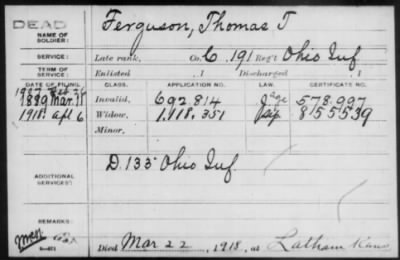 DEAD
NAME OF SOLDIER: Ferguson, Thomas T
SERVICE: Late rank, Co. G. 191 Reg't Ohio Inf
TERM OF SERVICE: Enlisted , 1 Discharged , 1
DATE OF FILING. CLASS. APPLICATION NO. LAW. CERTIFICATE NO.
1889 Mar. 11 Invalid, 692814 age 578.997
1918. Apl 6 Widow, 1.118.351 855539
Minor,
ADDITIONAL SERVICES: D. 133 Ohio Inf.
REMARKS:
Died Mar 22, 1918, at Latham Kans